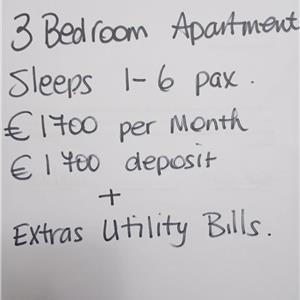 3 Bedroom Apartment
Sleeps 1-6 pax.
€1700 per Month
€1700 deposit
+
Extras Utility Bills.